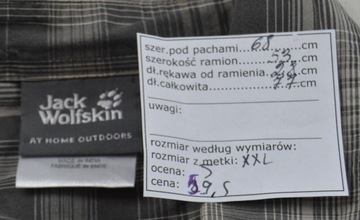 Jack
Wolfskin
AT HOME OUTDOORS
MADE IN INDIA
szer.pod pachami...68......cm
szerokość ramion...53...cm
dł.rękawa od ramienia.......cm
dł.całkowita......77.....cm
uwagi:
rozmiar według wymiarów:
rozmiar z metki: XXL
ocena: 5
cena: 59,5